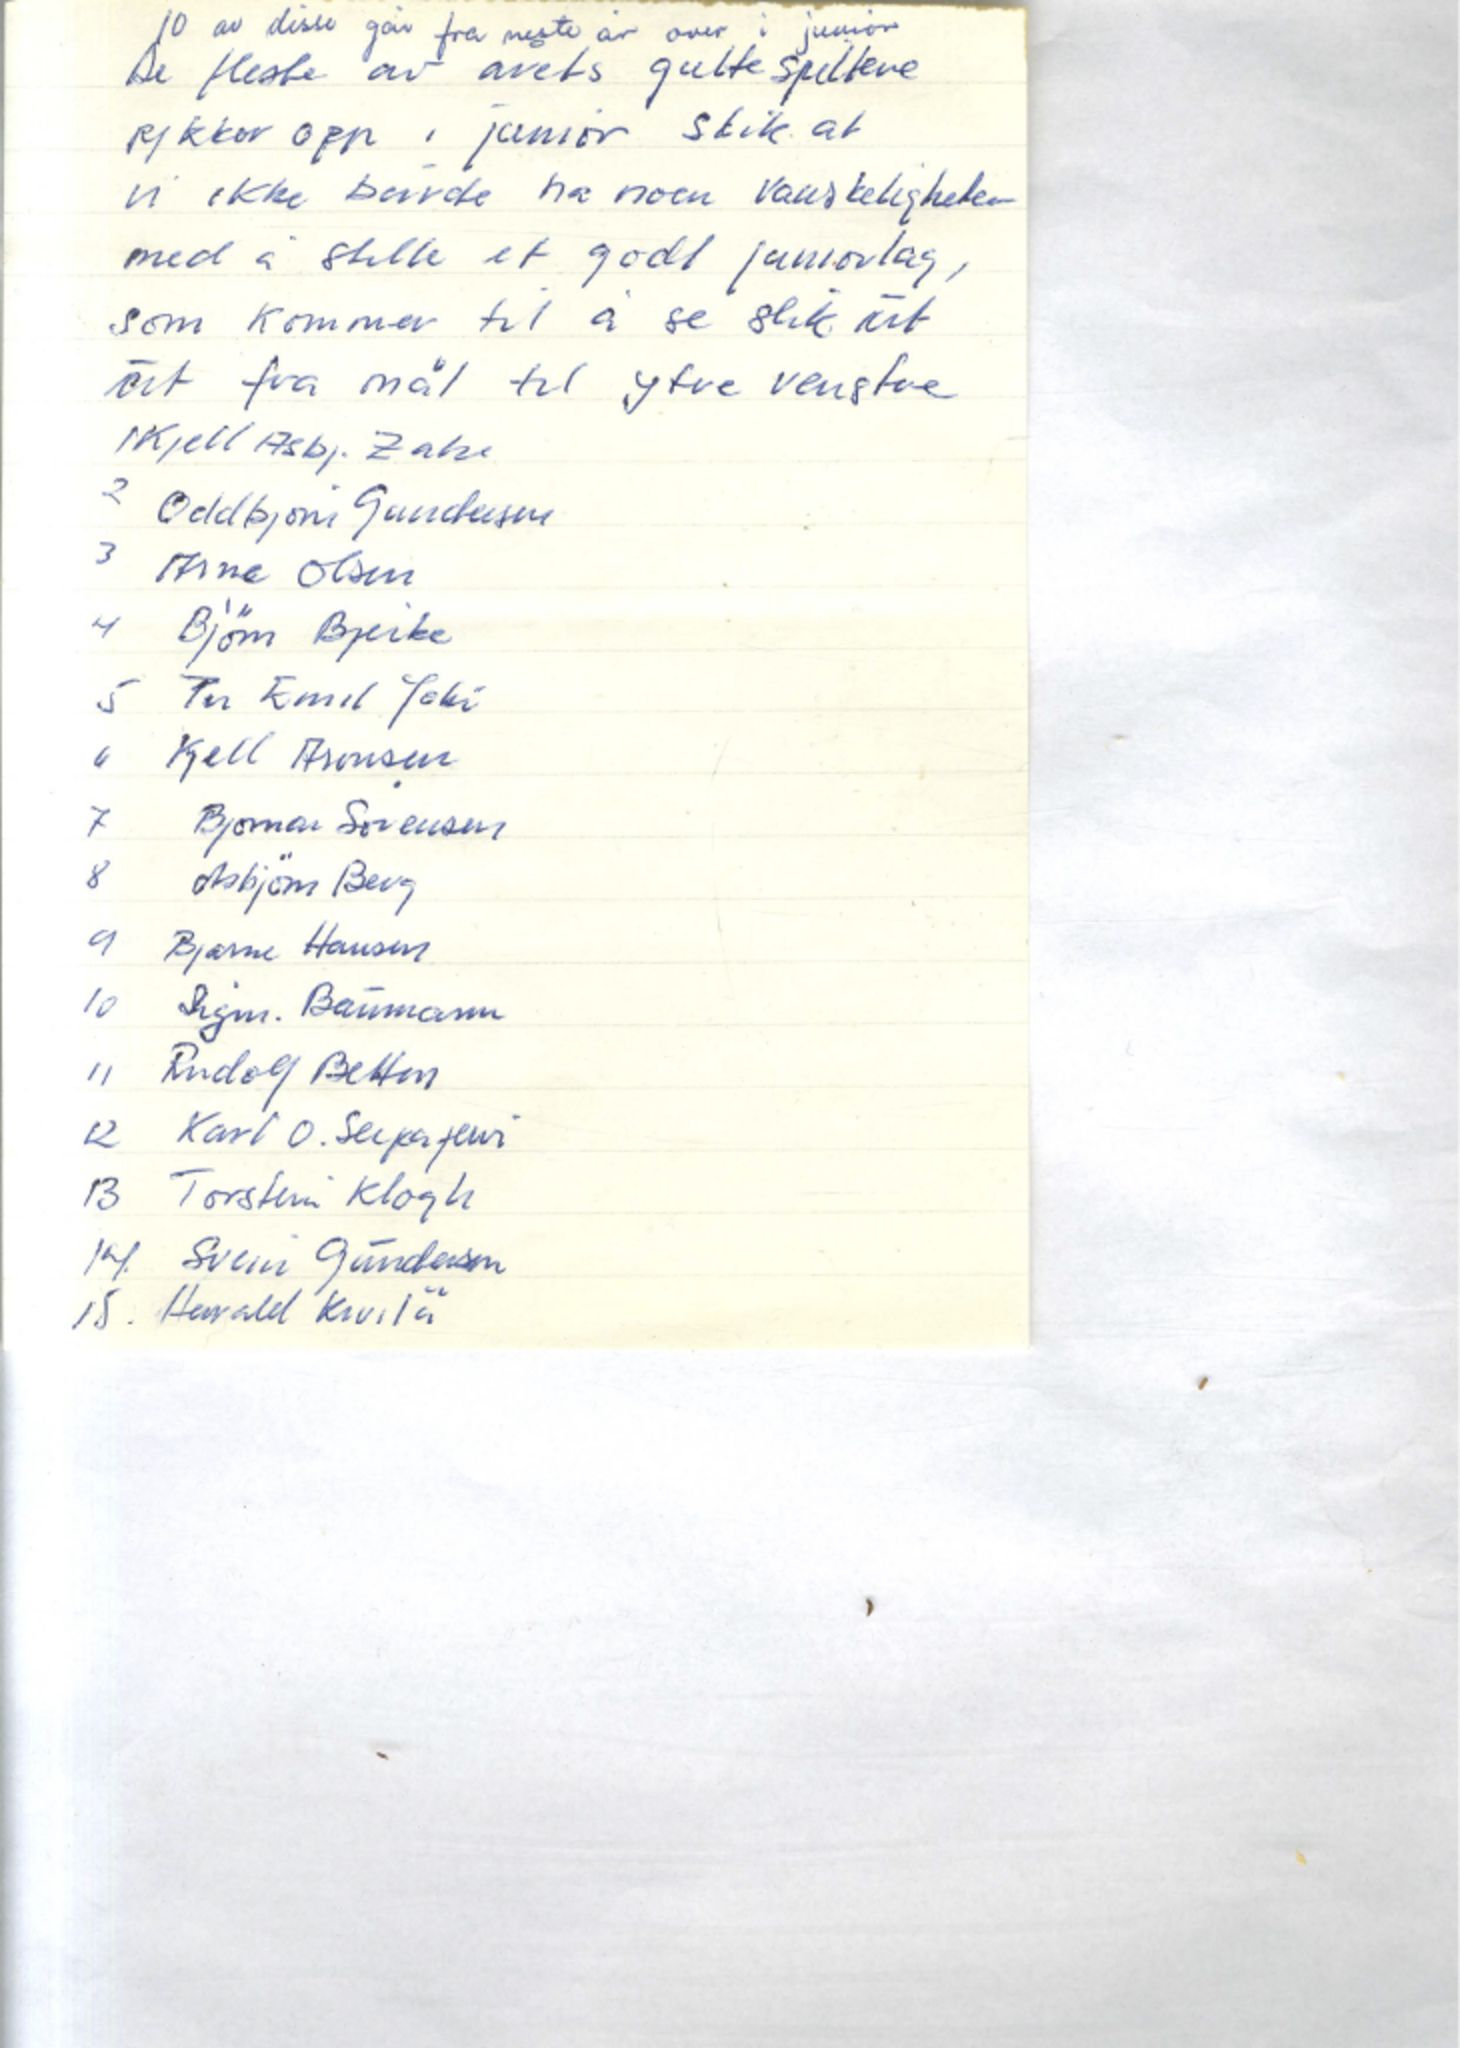 10 av disse går fra neste år over i junior
De fleste av årets guttespillere
rykker opp i junior slik at
vi ikke burde ha noen vanskeligheter
med å stille et godt juniorlag,
som kommer til å se slik ut
ut fra mål til ytre venstre
1 Kjell Asbj.
2 Oddbjørn Gundersen
3 Arne Olsen
4 Björn Bjerke
5 Per Emil Joki
6 Kjell Aronsen
7 Bjørnar Sørensen
8 Asbjörn Berg
9 Bjarne Hansen
10 Sigm. Baumann
11 Rudolf Betten
12 Karl O. Seipajervi
13 Torstein Klogh
14. Svein Gundersen
15. Harald Kivilä